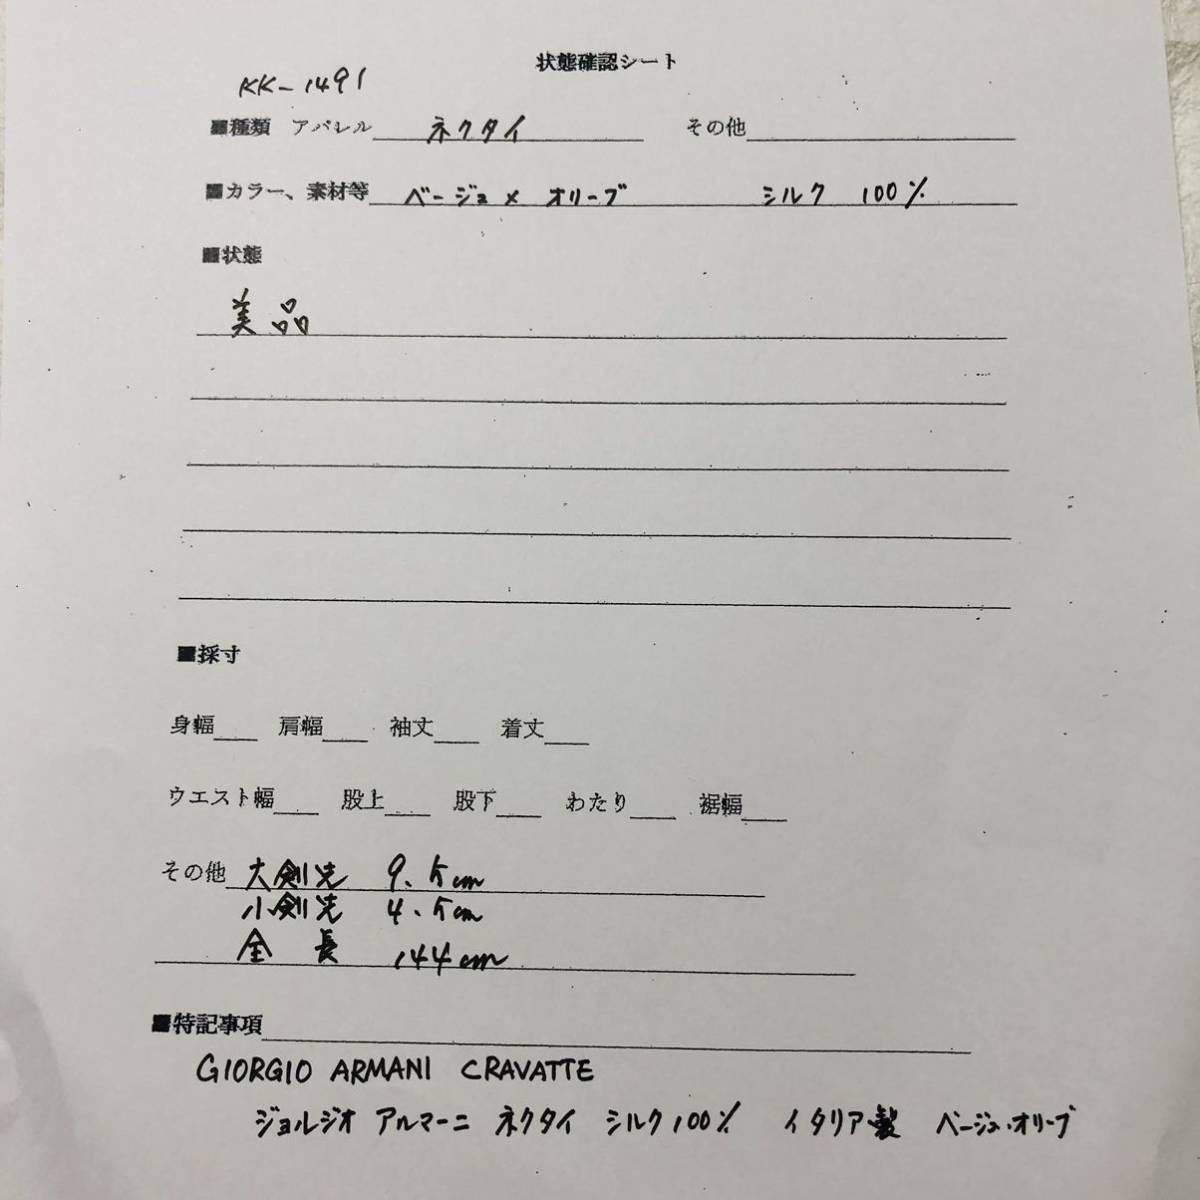 状態確認シート
KK-1491
■種類 アパレル ネクタイ その他
■カラー、素材等 ベージュ×オリーブ シルク 100%
■状態
美品
■採寸
身幅 肩幅 袖丈 着丈
ウエスト幅 股上 股下 わたり 裾幅
その他 大剣先 9.5cm
小剣先 4.5cm
全長 144cm
■特記事項
GIORGIO ARMANI CRAVATTE
ジョルジオ アルマーニ ネクタイ シルク100% イタリア製 ベージュ・オリーブ